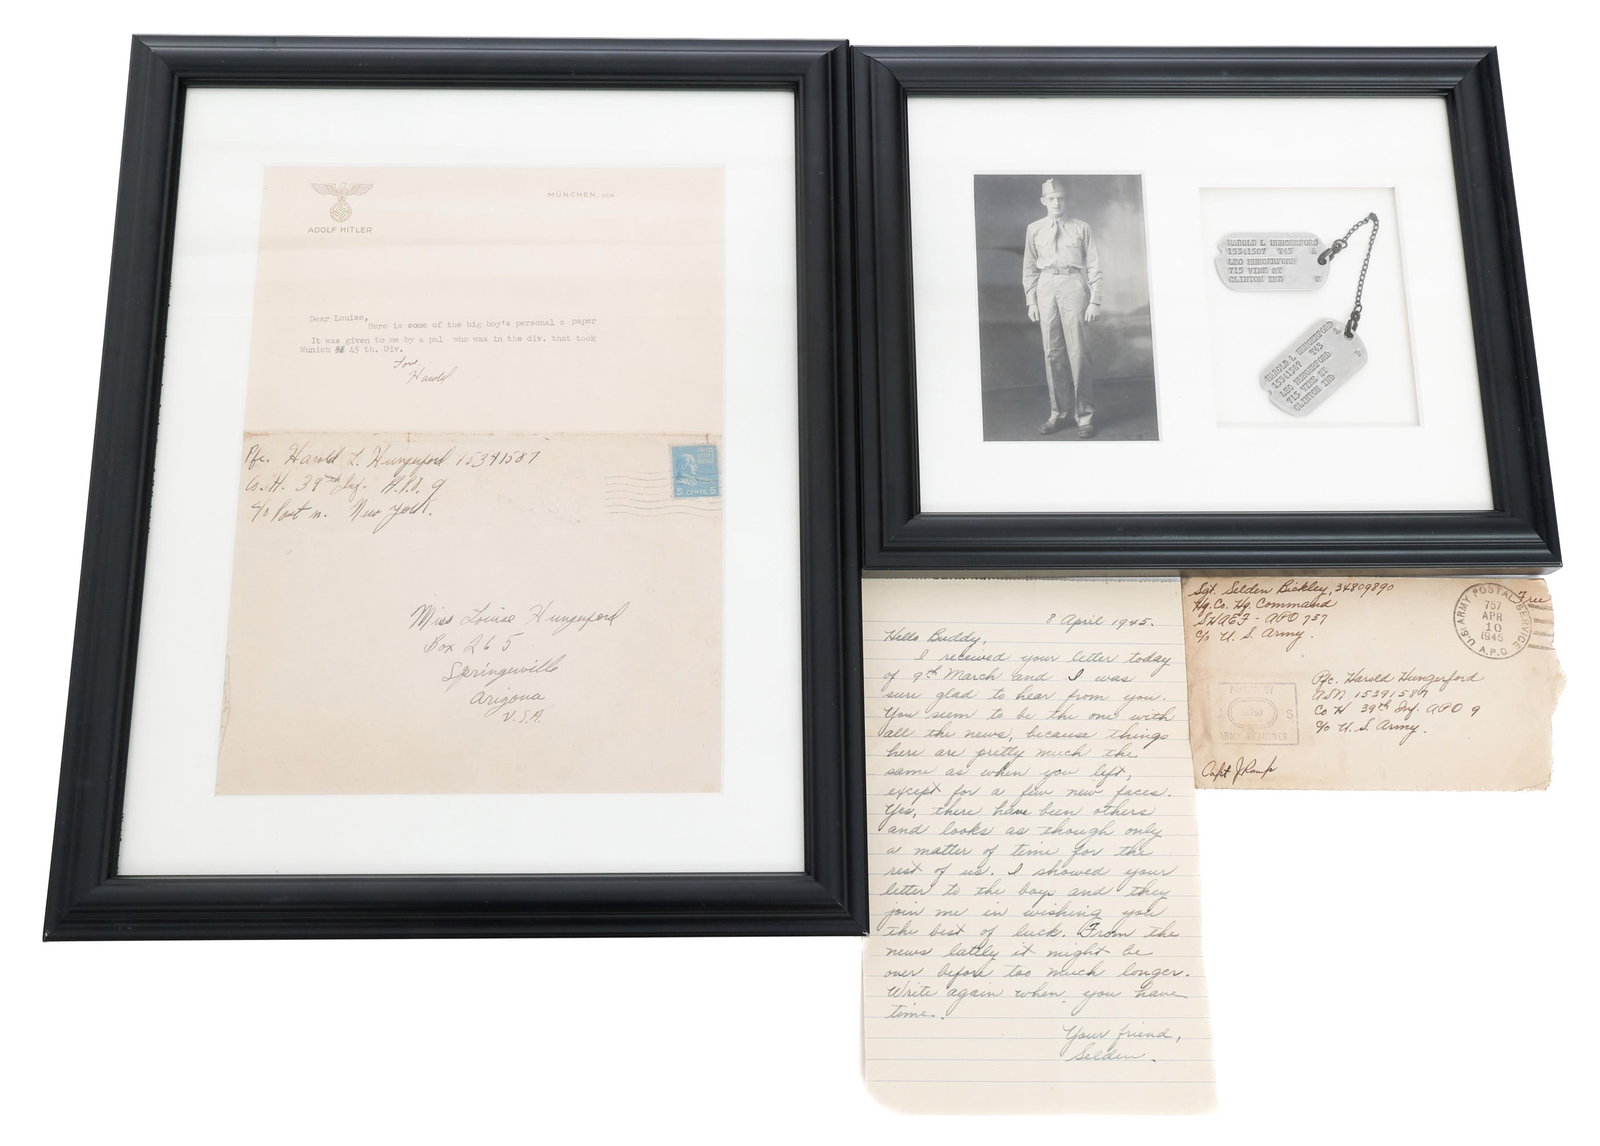 MÜNCHEN, DEN
ADOLF HITLER
Dear Louise,
Here is some of the big boy's personal s paper
It was given to me by a pal who was in the div. that took
Munich 45 th. Div.
Love
Harold
Pfc. Harold L. Hungerford 15341587
Co. H. 39th Inf. A.P.O. 9
c/o Post m. New York.
UNITED STATES POSTAGE
5 CENTS 5
Miss Louise Hungerford
Box 265
Springerville
Arizona
U.S.A.
HAROLD L HUNGERFORD
15341587 T43 A
LEO HUNGERFORD
715 VINE ST
CLINTON IND P
HAROLD L HUNGERFORD
15341587 T43 A
LEO HUNGERFORD P
715 VINE ST
CLINTON IND
8 April 1945.
Hello Buddy,
I received your letter today
of 9th March and I was
sure glad to hear from you.
You seem to be the one with
all the news, because things
here are pretty much the
same as when you left,
except for a few new faces.
Yes, there have been others
and looks as though only
a matter of time for the
rest of us. I showed your
letter to the boys and they
join me in wishing you
the best of luck. From the
news lately it might be
over before too much longer.
Write again when you have
time.
Your friend,
Selden.
Sgt. Selden Bickley, 34809890
Hq. Co. Hq. Command
SHAEF - APO 757
c/o U. S. Army.
Free
U.S. ARMY POSTAL SERVICE
757
APR
10
1945
A.P.O.
Pfc. Harold Hungerford
ASN 15391587
Co H 39th Inf. APO 9
c/o U. S. Army.
PASSED BY
S
ARMY EXAMINER
Capt